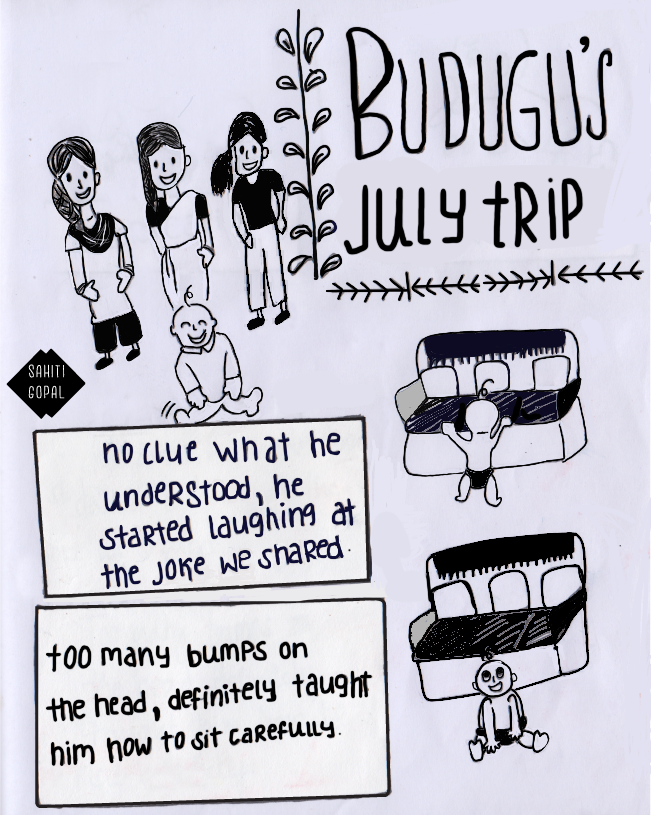 BUDUGU'S
JULY tRiP
SAHITI
GOPAL
no clue what he
undeRStood, he
staRted laughing at
the joke we shaRed.
too many bumps on
the head, definitely taught
him how to sit caRefully.